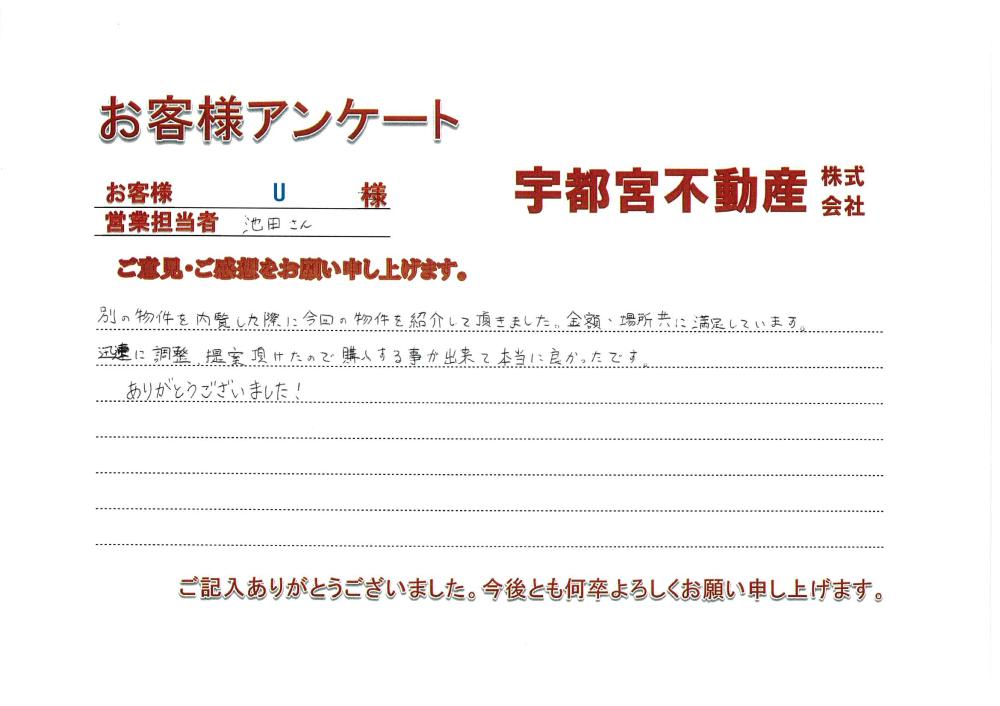 お客様アンケート
宇都宮不動産 株式会社
お客様 U 様
営業担当者 池田さん
ご意見・ご感想をお願い申し上げます。
別の物件を内覧した際に今回の物件を紹介して頂きました。金額・場所共に満足しています。
迅速に調整、提案頂けたので購入する事が出来て本当に良かったです。
ありがとうございました!
ご記入ありがとうございました。今後とも何卒よろしくお願い申し上げます。